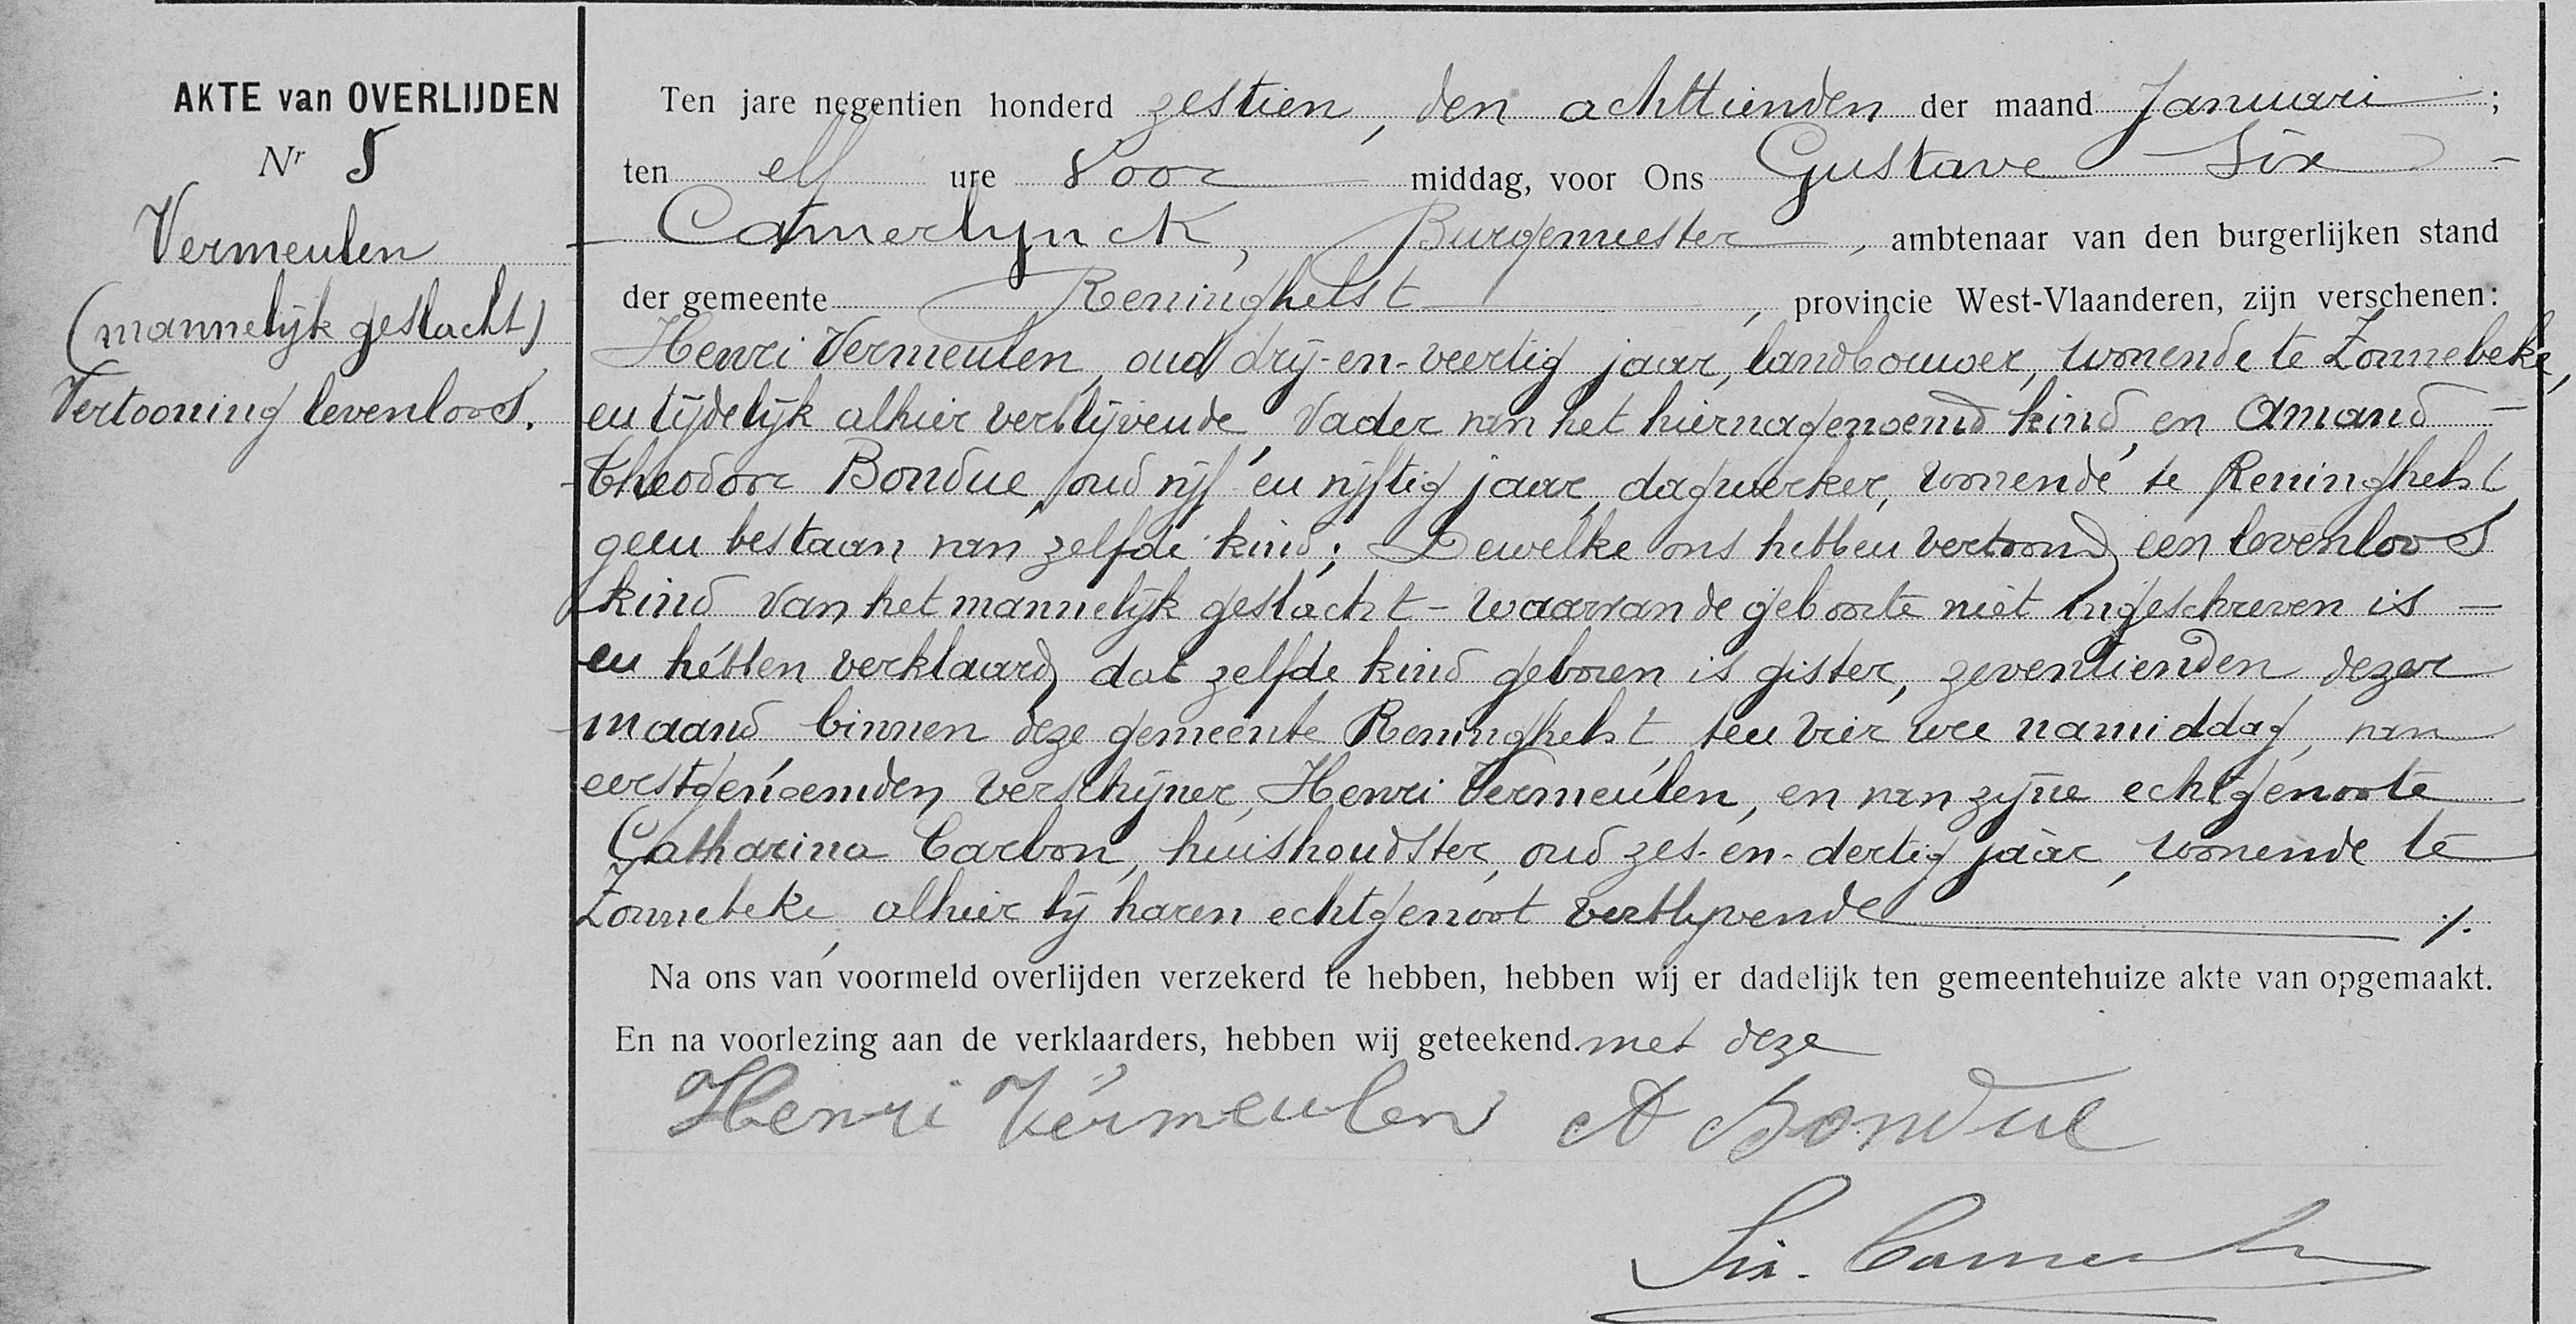 AKTE van OVERLIJDEN
Nr 5
Vermeulen
(mannelijk geslacht)
Vertooning levenloos.
Ten jare negentien honderd zestien, den achttienden der maand Januari;
ten elf ure Voor middag, voor Ons Gustave Six -
- Camerlynck, Burgemeester, ambtenaar van den burgerlijken stand
der gemeente Reninghelst, provincie West-Vlaanderen, zijn verschenen:
Henri Vermeulen, oud drij-en-veertig jaar, landbouwer, wonende te Zonnebeke,
en tijdelijk alhier verblijvende, Vader van het hiernagenoemd kind, en Amand -
- Theodore Bondue, oud vijf en vijftig jaar, dagwerker, wonende te Reninghelst,
geen bestaan van zelfde kind; Dewelke ons hebben vertoond een levenloos
kind van het mannelijk geslacht - waarvan de geboorte niet ingeschreven is -
en hebben verklaard dat zelfde kind geboren is gister, zeventienden dezer
maand binnen deze gemeente Reninghelst, ten vier ure namiddag, van
eerstgenoemden verschijner, Henri Vermeulen, en van zijne echtgenoote
Catharina Carbon, huishoudster, oud zes-en-dertig jaar, wonende te
Zonnebeke, alhier bij haren echtgenoot verblijvende ./.
Na ons van voormeld overlijden verzekerd te hebben, hebben wij er dadelijk ten gemeentehuize akte van opgemaakt.
En na voorlezing aan de verklaarders, hebben wij geteekend met deze
Henri Vermeulen A Bondue
Six. Camerlynck